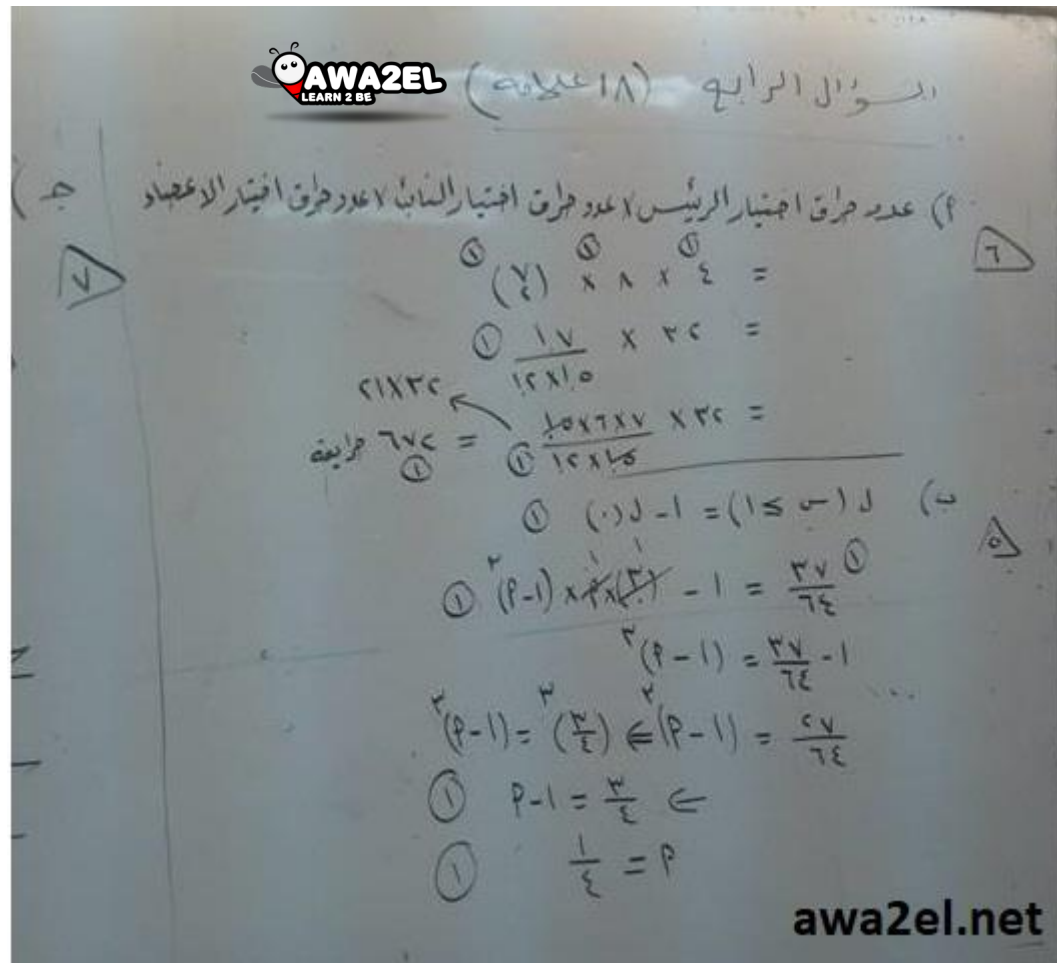 AWA2EL
LEARN 2 BE
السؤال الرابع (١٨ علامة)
أ) عدد طرق اختيار الرئيس × عدد طرق اختيار النائب × عدد طرق اختيار الاعضاء
٦
= ٤ × ٨ × (٧ ٤) ① ① ①
= ٣٢ × ١٧ / ١٢×١٥ ①
= ٣٢ × ٧×٦×١٥ / ١٢×١٥ ① = ٦٧٢ طريقة ①
٢١×٣٢
ب) ل (س ≥ ١) = ١ - ل(٠) ①
٥
٣٧/٦٤ ① = ١ - (٣ ٠) × أ × (١-أ)^٣ ①
١ - ٣٧/٦٤ = (١ - أ)^٣
٢٧/٦٤ = (١ - أ)^٣ ⇐ (٣/٤)^٣ = (١-أ)^٣
⇐ ٣/٤ = ١-أ ①
أ = ١/٤ ①
جـ)
٧
awa2el.net